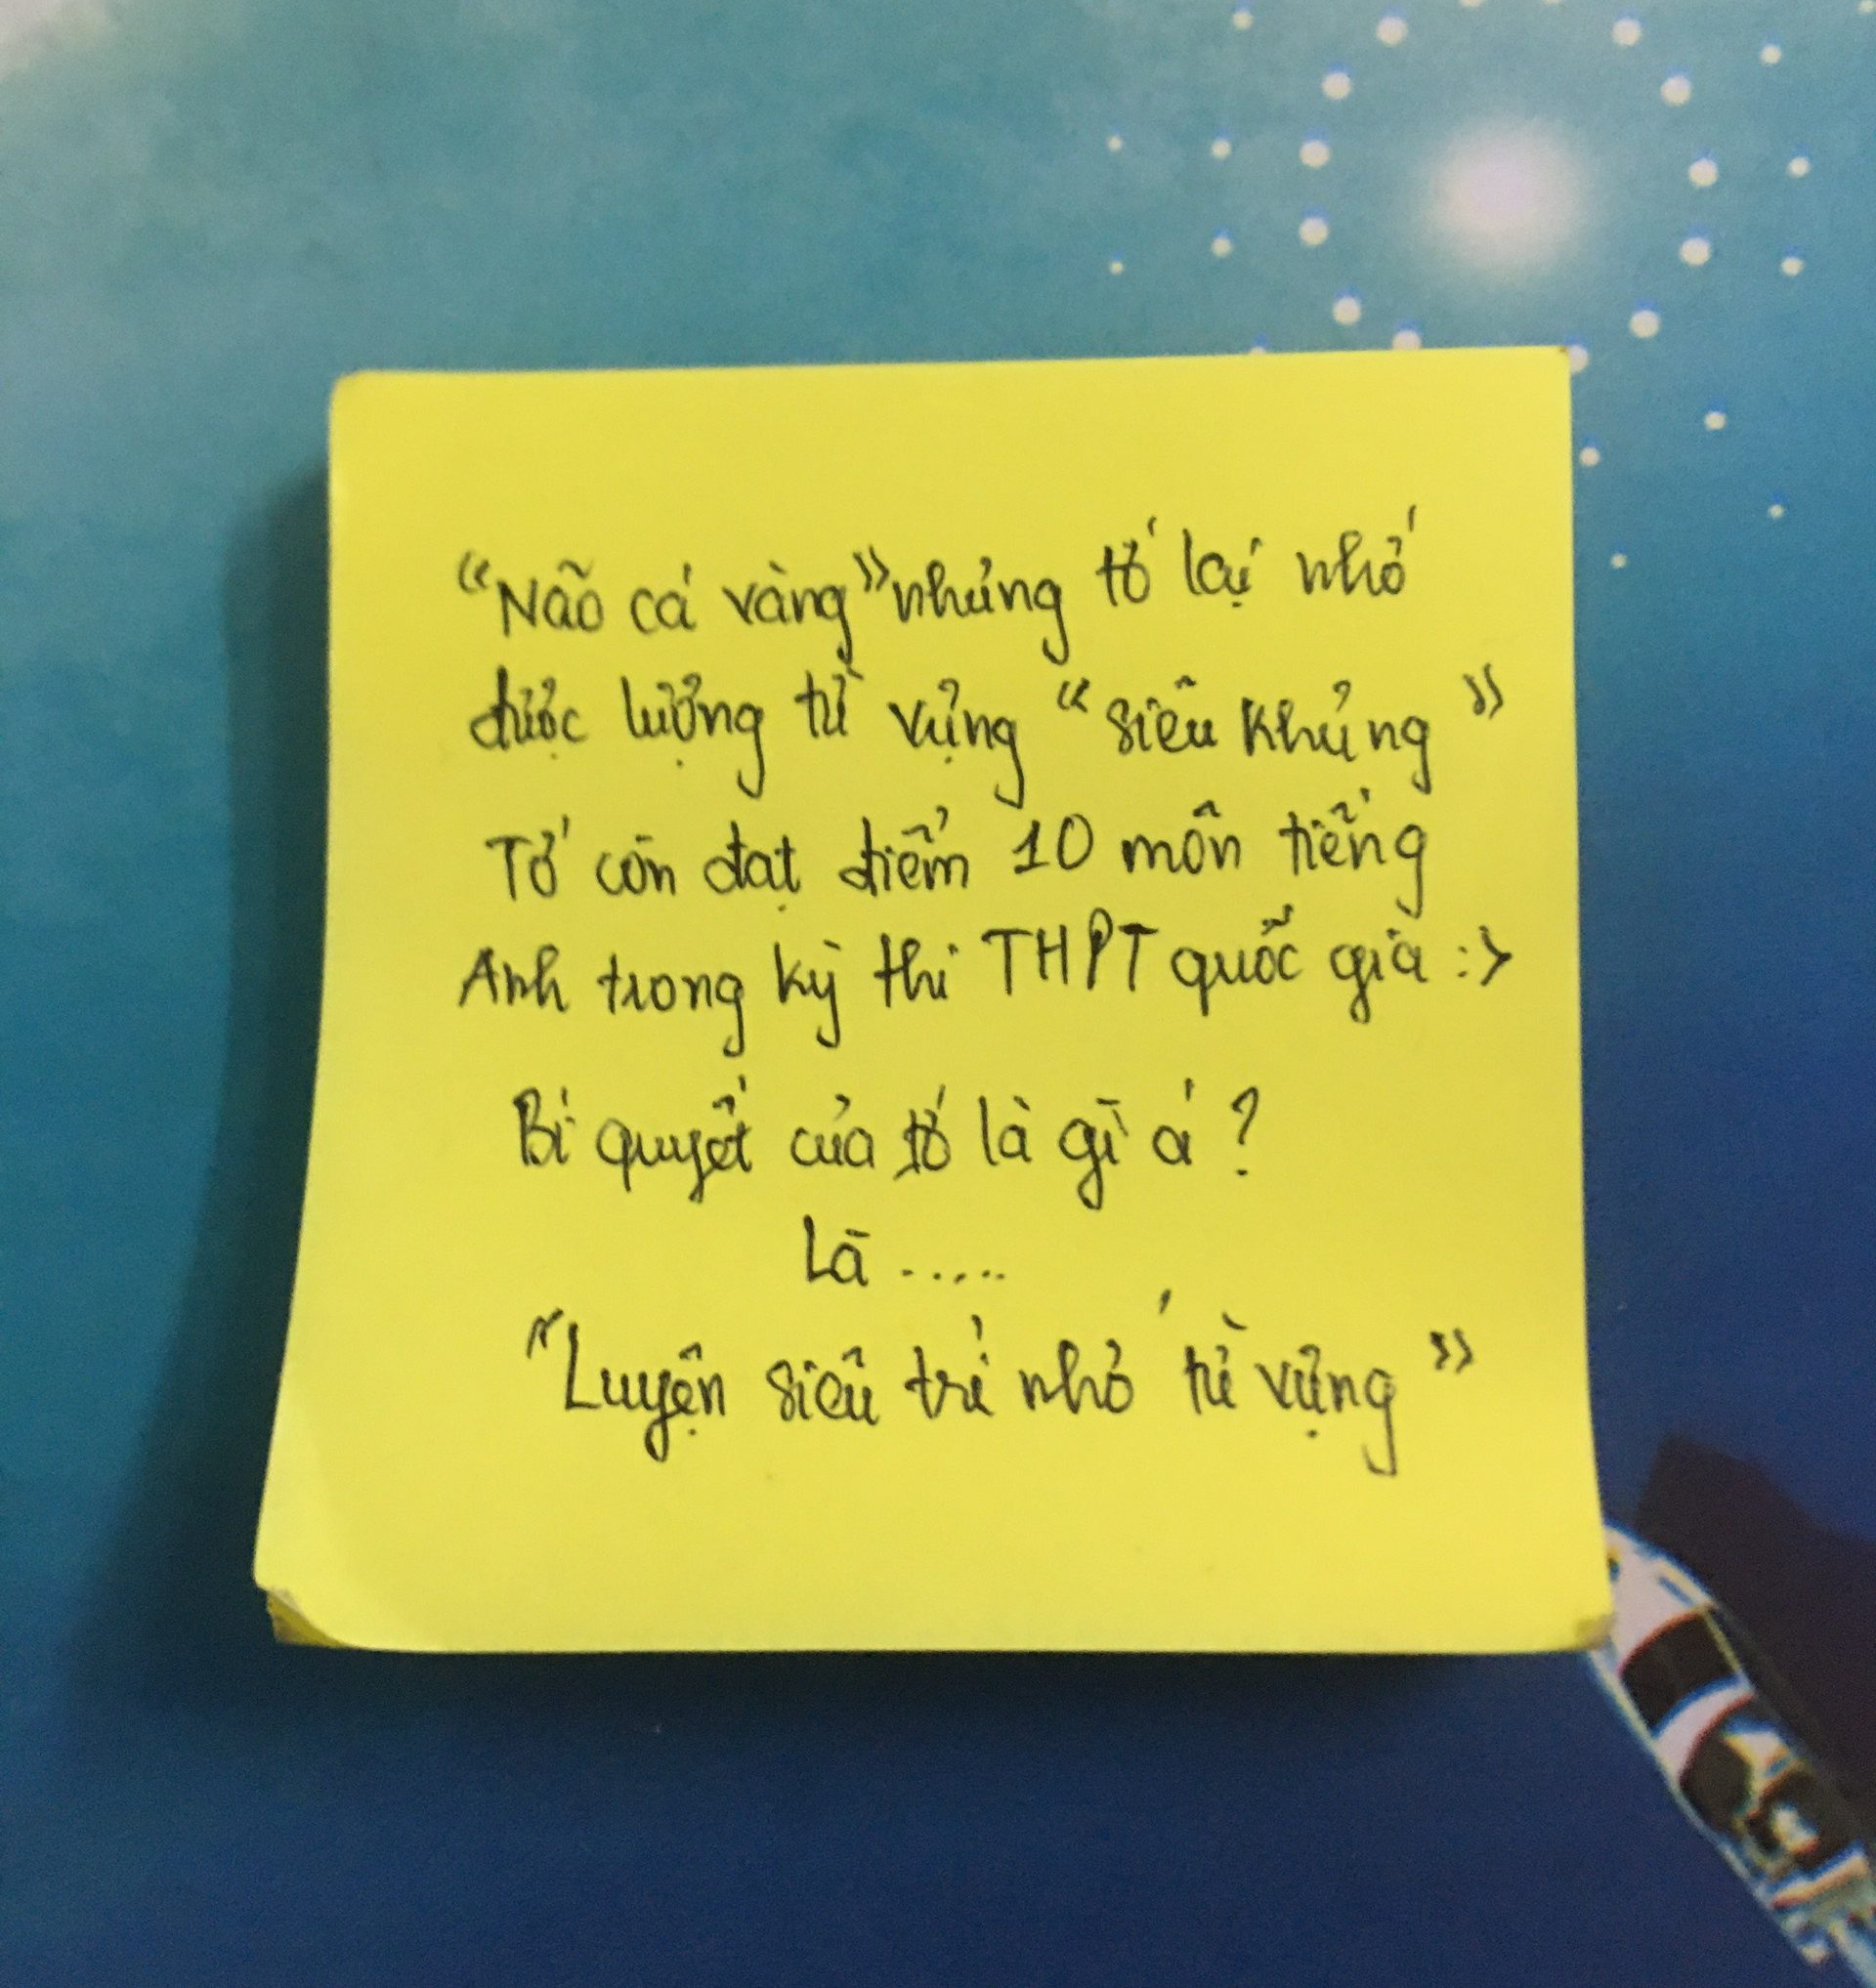 “Não cá vàng” nhưng tớ lại nhớ
được lượng từ vựng “siêu khủng”
Tớ còn đạt điểm 10 môn tiếng
Anh trong kỳ thi THPT quốc gia :>
Bí quyết của tớ là gì á ?
Là .....
“Luyện siêu trí nhớ từ vựng”